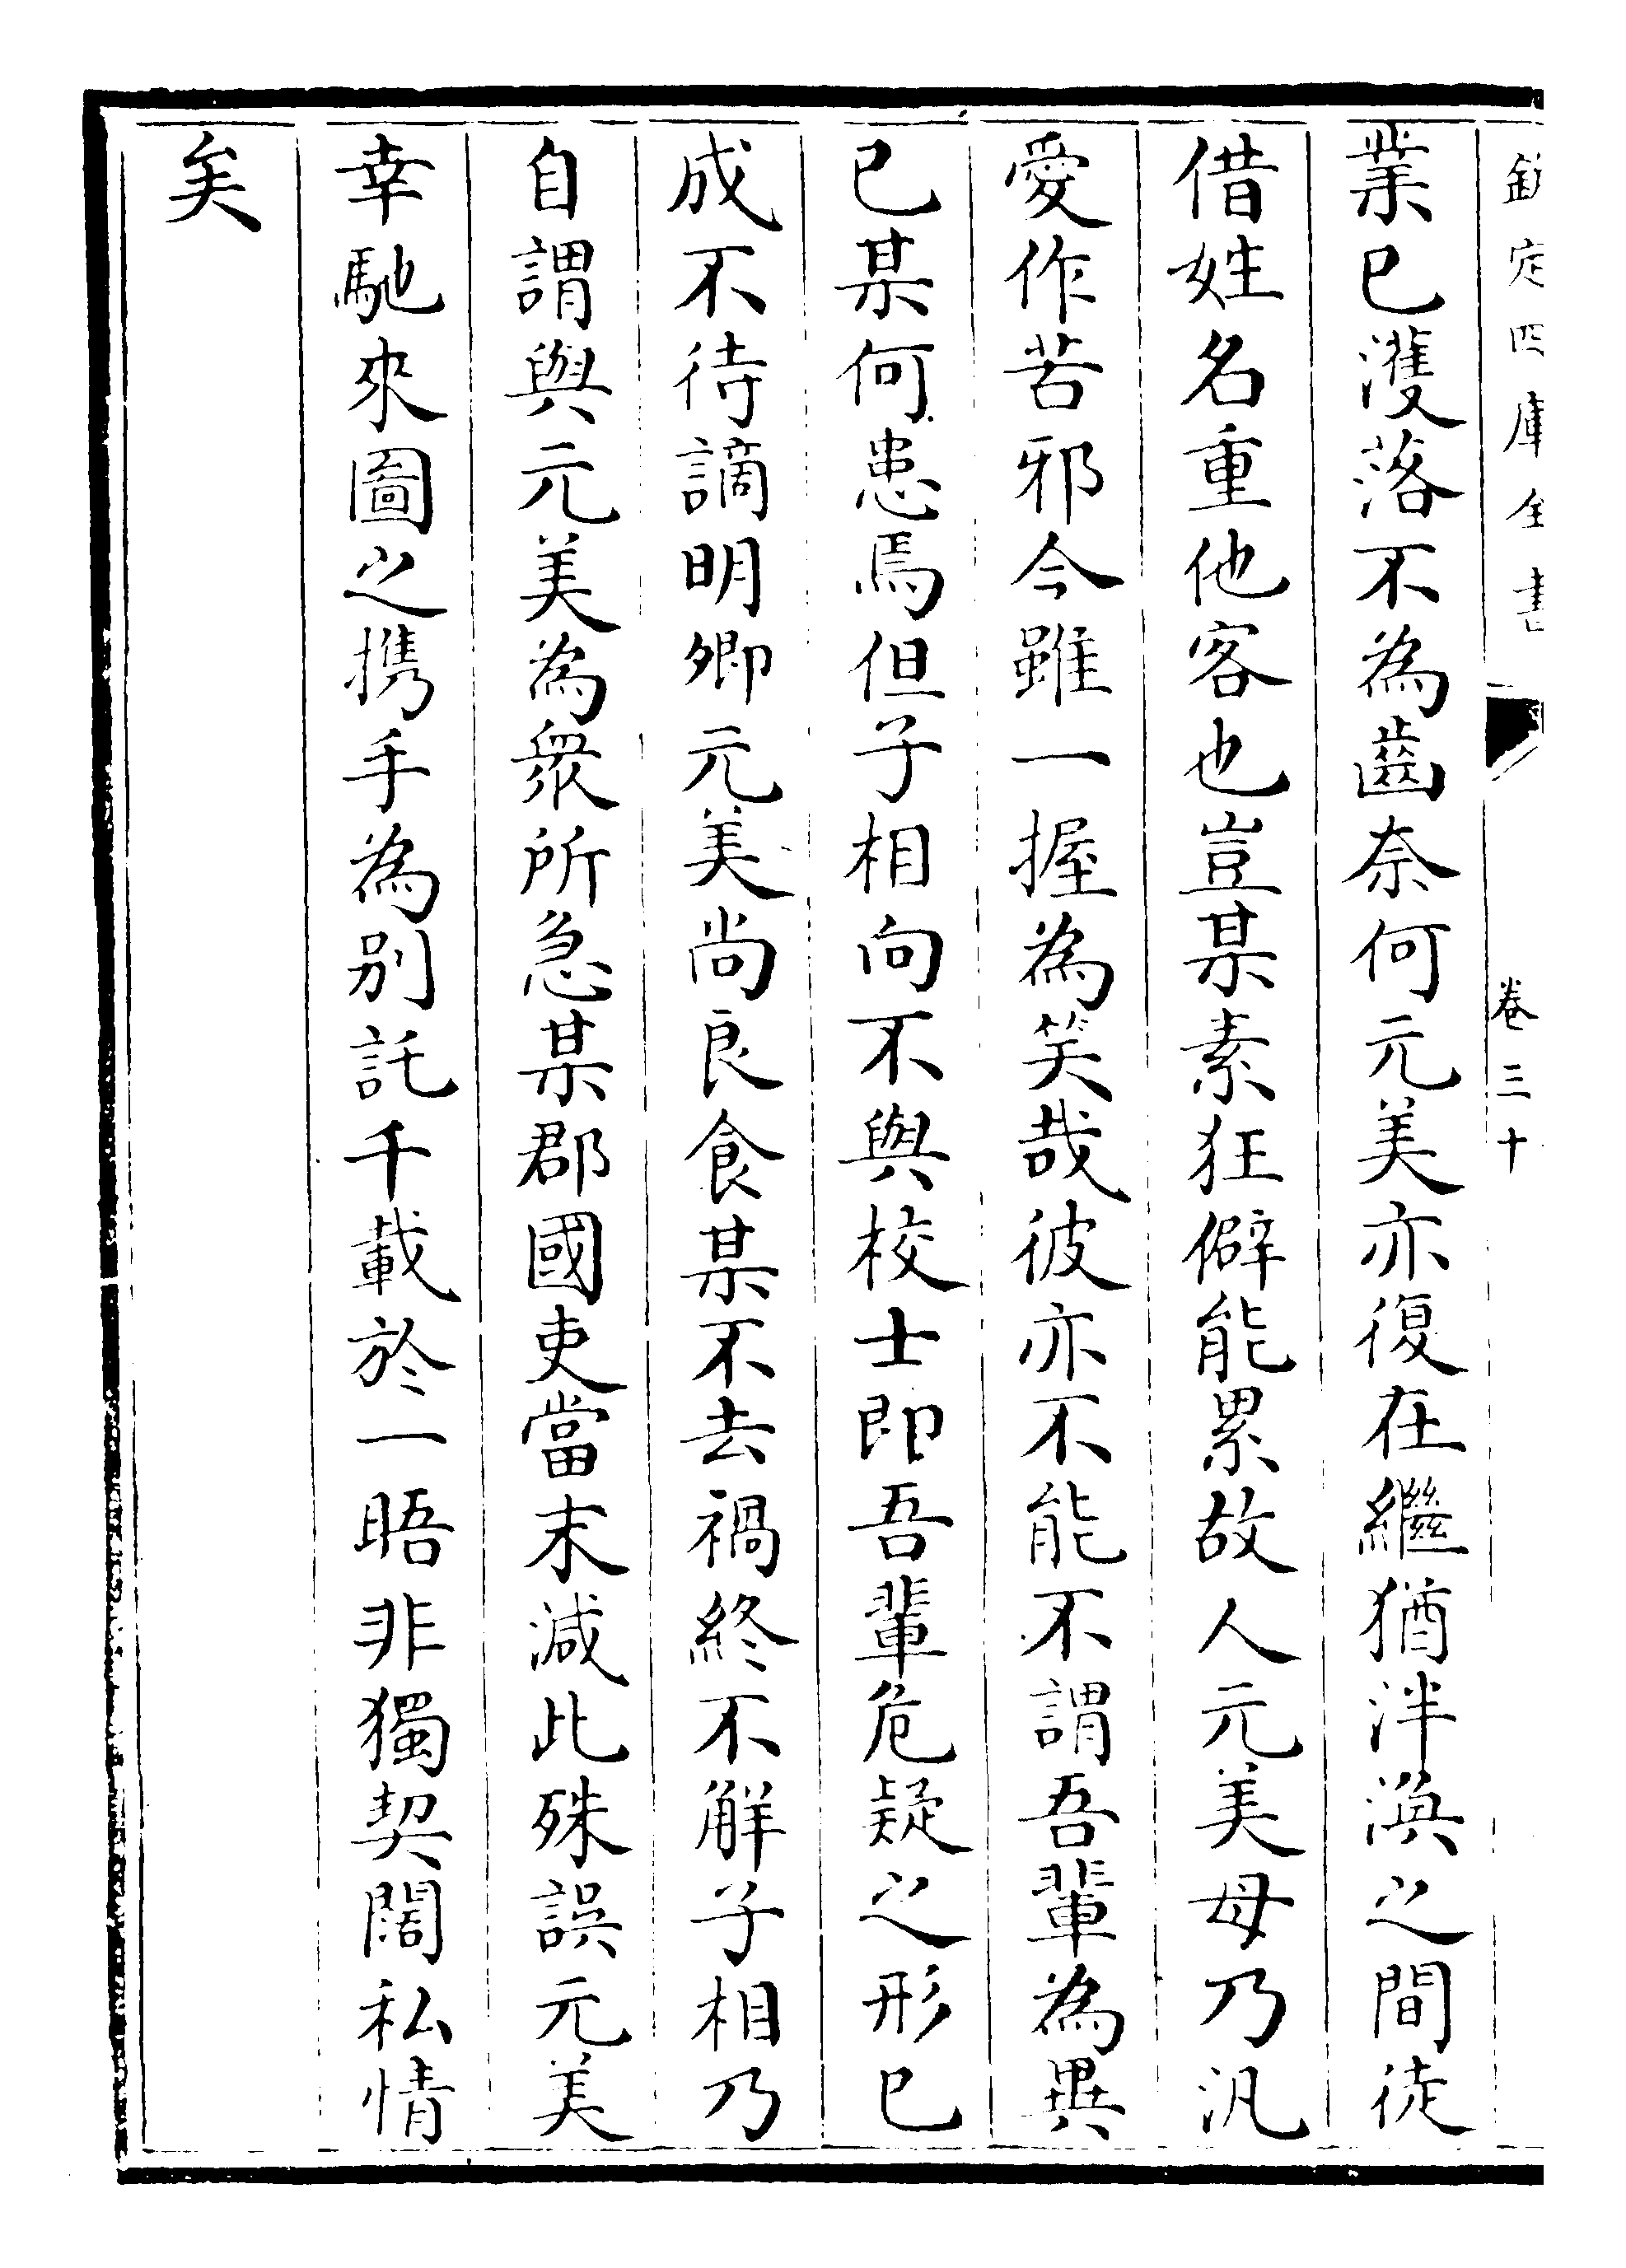 欽定四庫全書 卷三十
業已濩落不為齒奈何元美亦復在繼猶泮渙之間徒
借姓名重他客也豈某素狂僻能累故人元美毋乃汎
愛作苦邪今雖一握為笑哉彼亦不能不謂吾輩為異
已某何患焉但子相向不與校士即吾輩危疑之形已
成不待謫明卿元美尚良食某不去禍終不解子相乃
自謂與元美為衆所急某郡國吏當末減此殊誤元美
幸馳來圖之携手為别託千載於一晤非獨契闊私情
矣